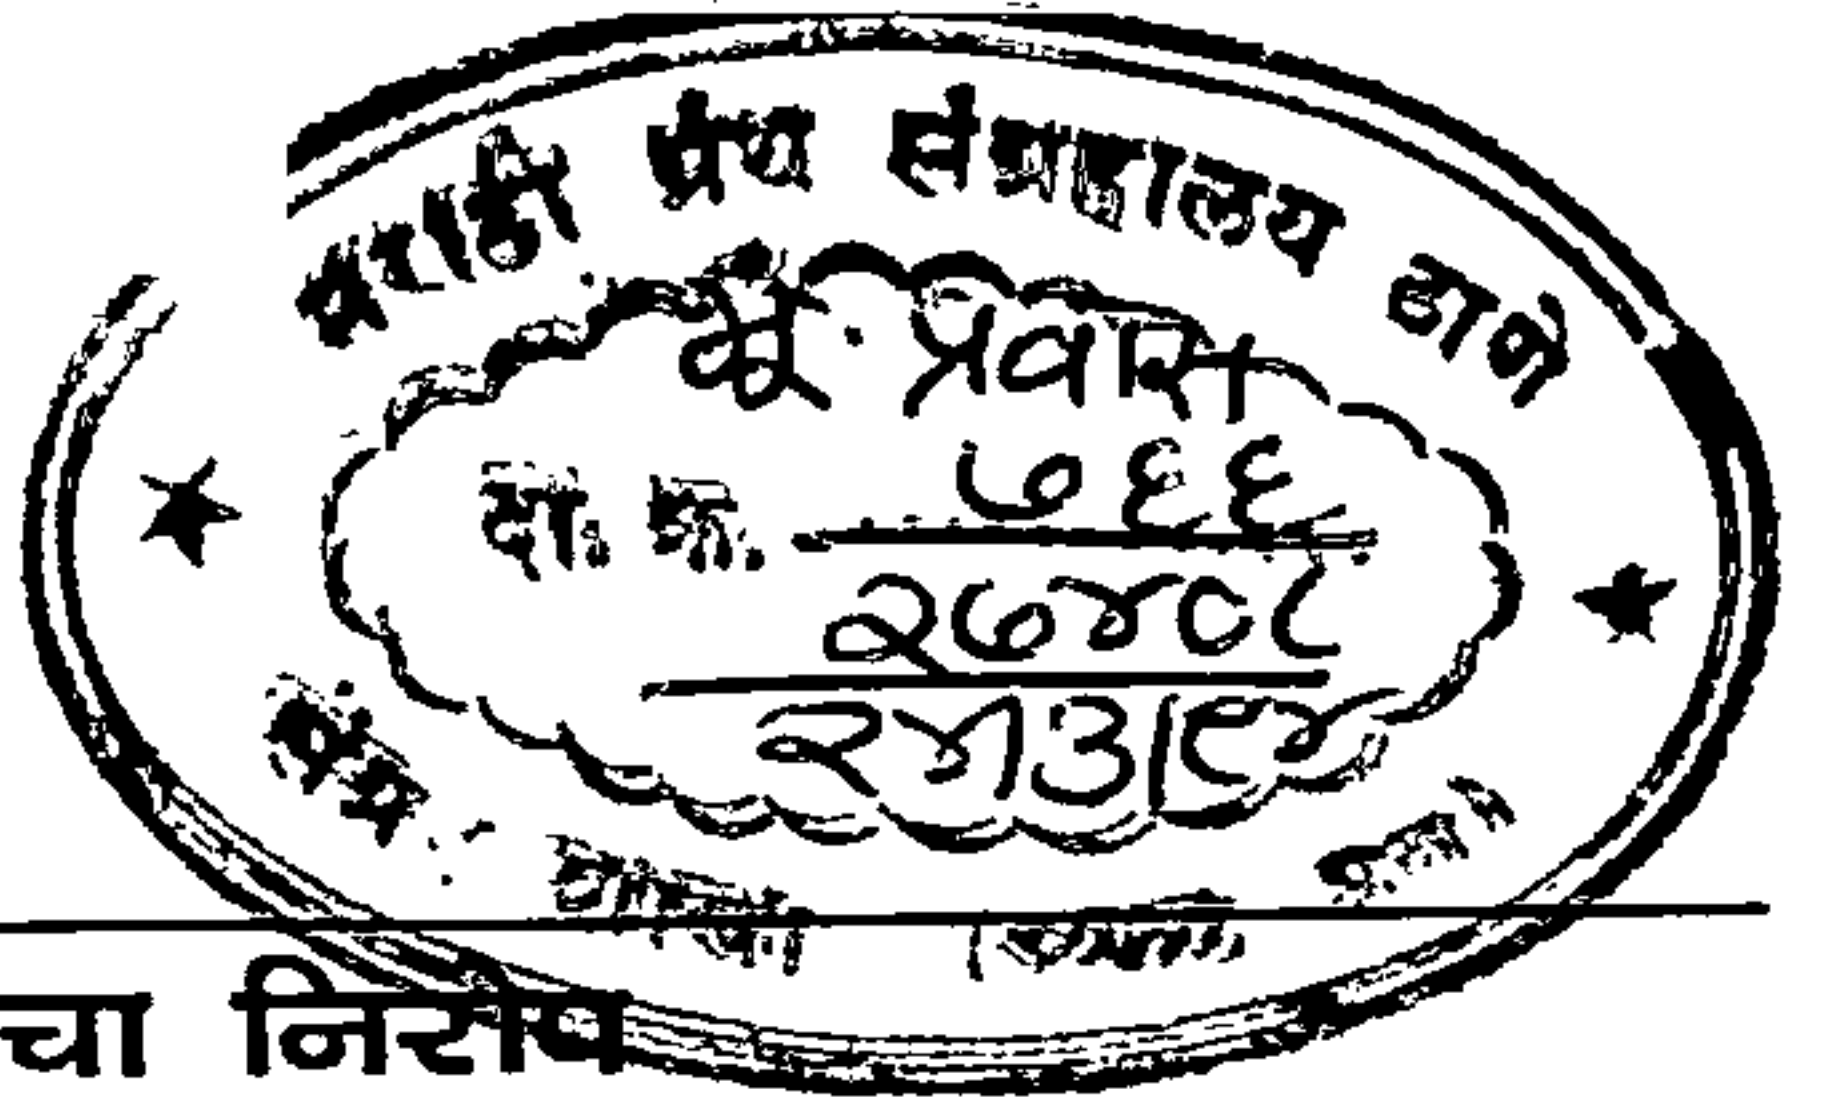 मराठी ग्रंथ संग्रहालय ठाणे
भू. प्रवास
दा. क्र. ७६६
२७४०८
२४।३।९४
चा निरोप